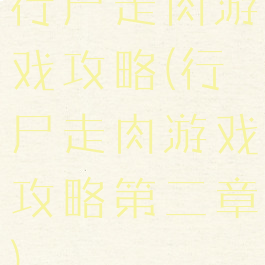 行尸走肉游
戏攻略(行
尸走肉游戏
攻略第二章
)